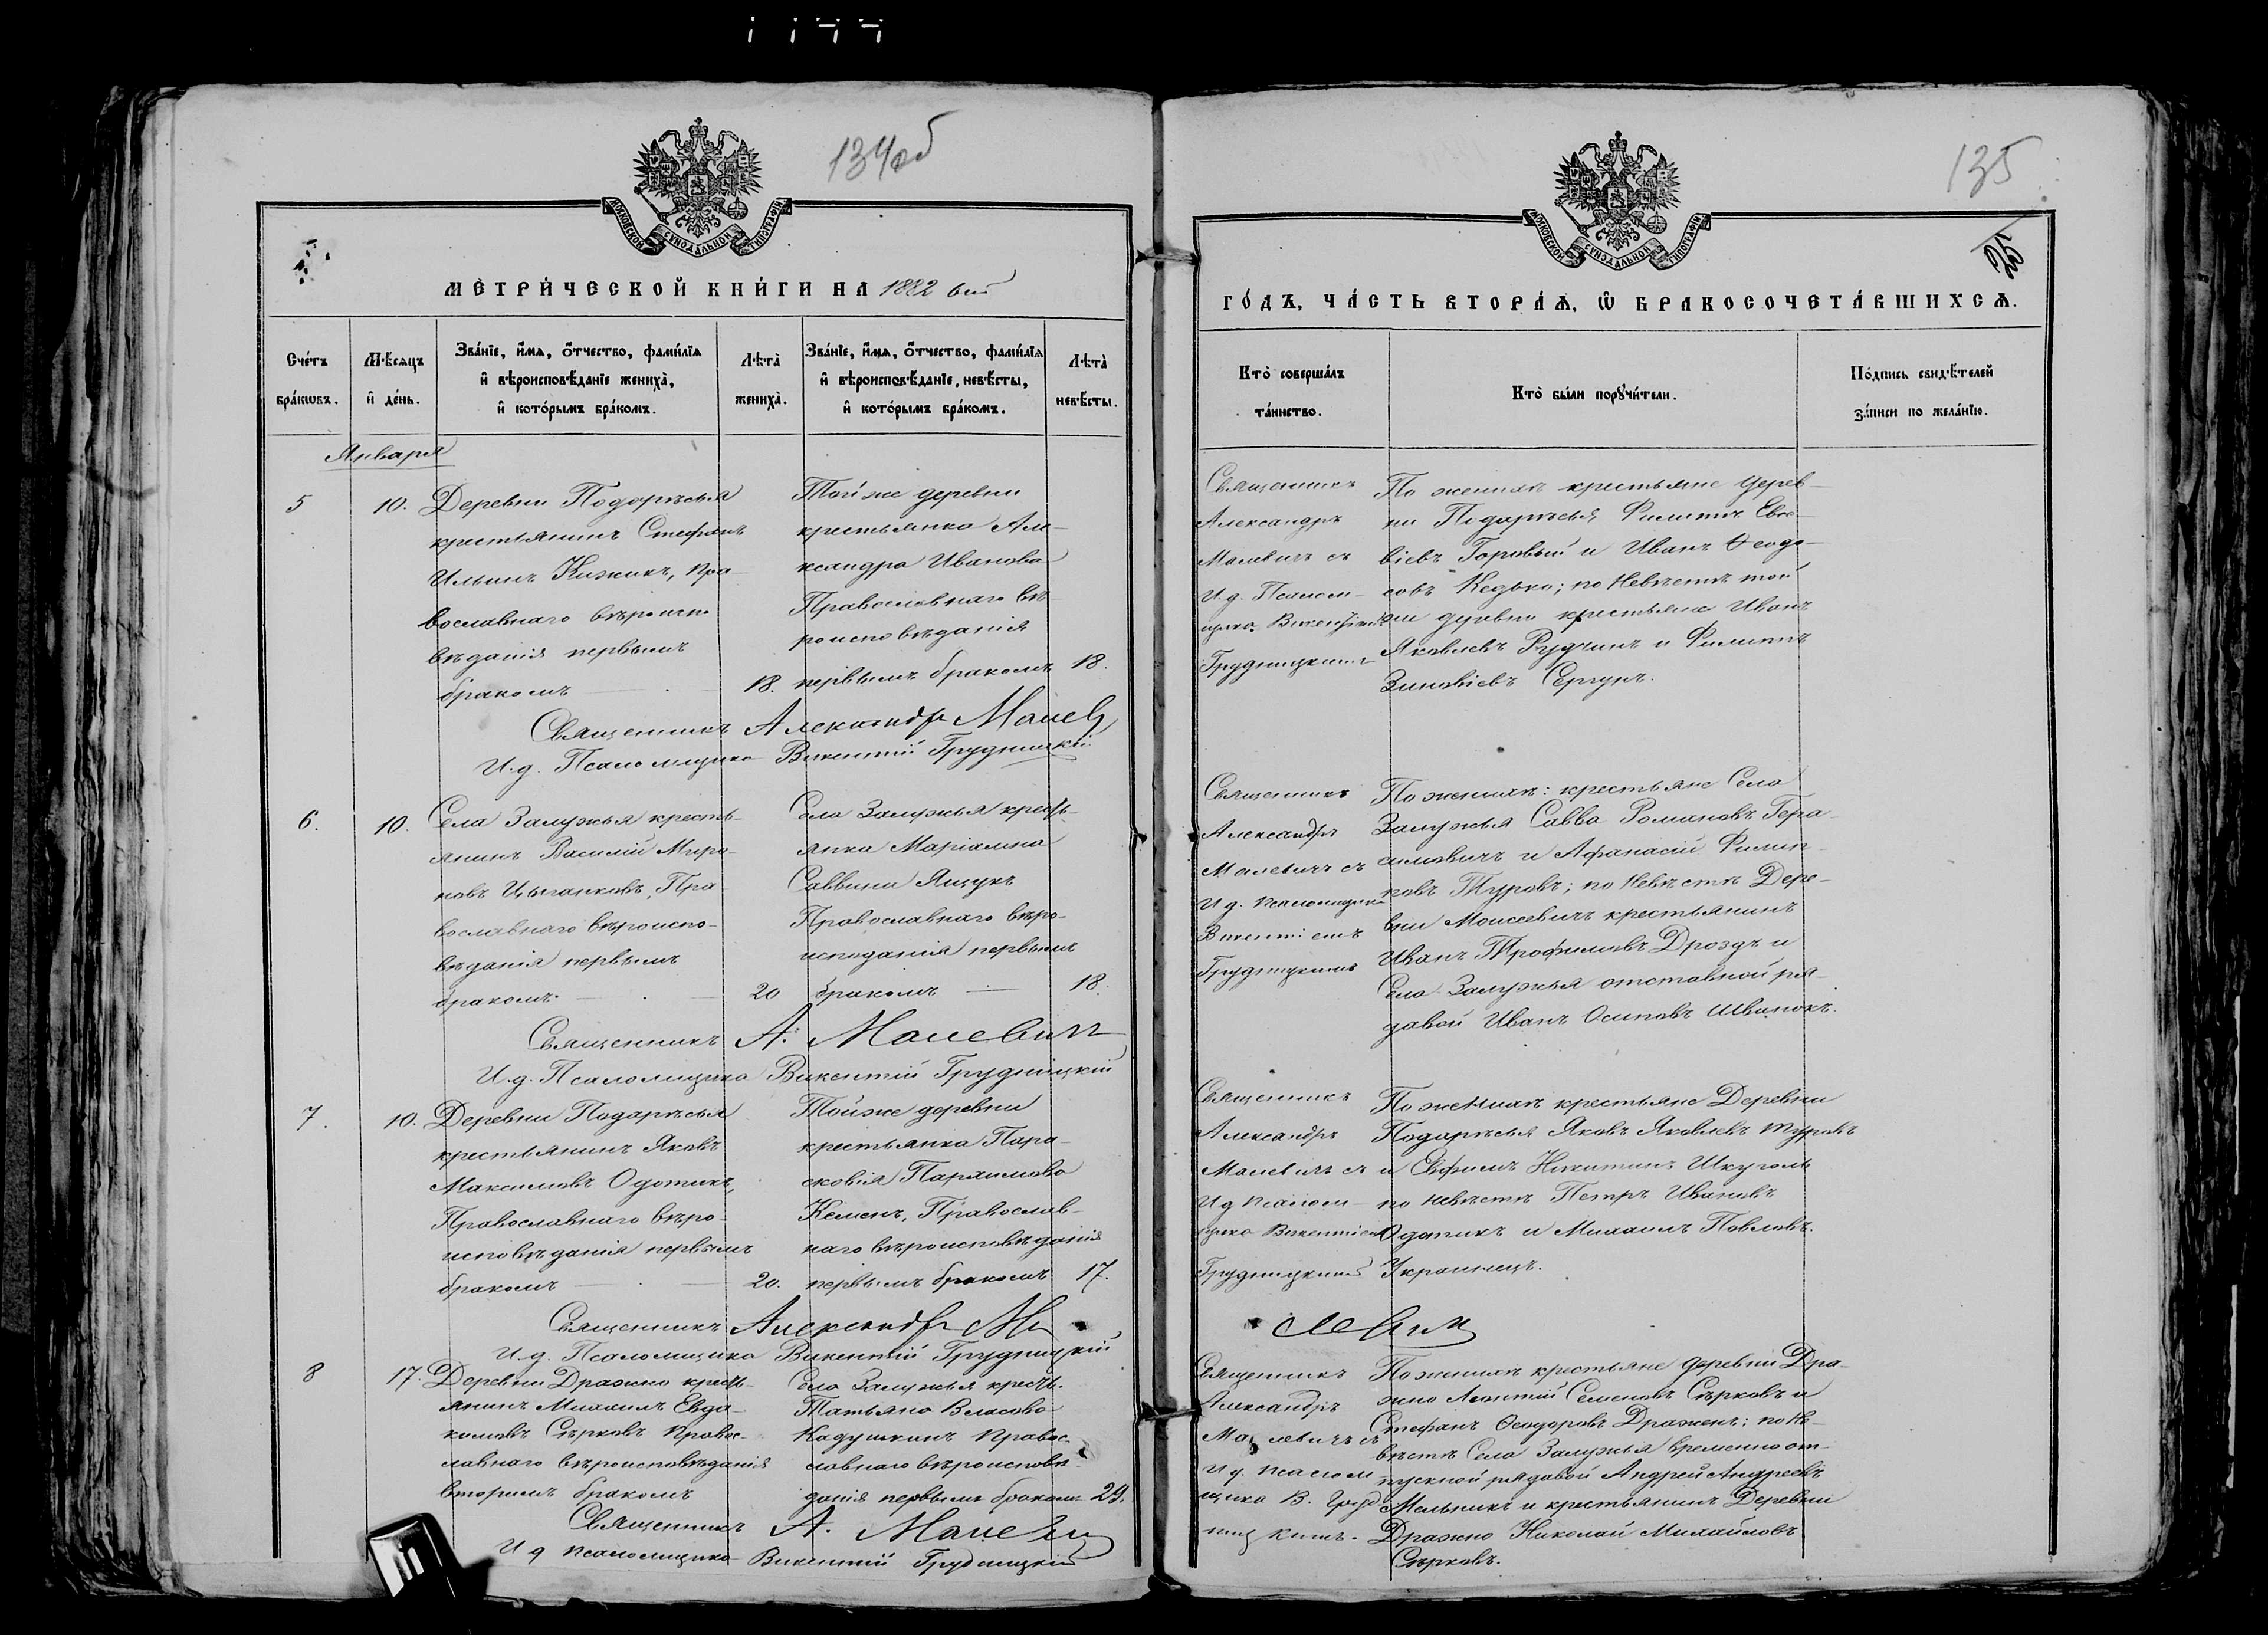 134об
МОСКОВСКОЙ СѴНОДАЛЬНОЙ ТИПОГРАФІИ
МЕТРИ́ЧЕСКОЙ КНИ́ГИ НА 1882 вый
Сче́тъ бра́кѡвъ.
Мѣ́сяцъ и҆ де́нь.
Зва́нїе, и҆́мѧ, ѻ҆́тчество, фами́лїѧ
и҆ вѣроисповѣ́данїе жениха̀,
и҆ кото́рымъ бра́комъ.
Лѣта̀ жениха̀.
Зва́нїе, и҆́мѧ, ѻ҆́тчество, фами́лїѧ
и҆ вѣроисповѣ́данїе, невѣ́сты,
и҆ кото́рымъ бра́комъ.
Лѣта̀ невѣ́сты.
Января
5
10.
Деревни Подорѣсья
крестьянинъ Стефанъ
Ильинъ Кижикъ, пра
вославнаго вѣроиспо
вѣданія первымъ
бракомъ
18.
Той же деревни
крестьянка Але-
ксандра Иванова
Православнаго вѣ-
роисповѣданія
первымъ бракомъ
18.
Священникъ Александръ
И.д. Псаломщика Викентій Грудницкій
6.
10.
Села Залужья кресть-
янинъ Василій Миро-
новъ Цыганковъ, Пра-
вославнаго вѣроиспо-
вѣданія первымъ
бракомъ
20
Села Залужья кресть-
янка Маріамна
Саввина Ящукъ
Православнаго вѣро-
исподанія первымъ
бракомъ
18.
Священникъ А. Малевичъ
И.д. Псаломщика Викентій Грудницкій
7.
10.
Деревни Подарѣсья
крестьянинъ Яковъ
Максимовъ Одотикъ,
Православнаго вѣро-
исповѣданія первымъ
бракомъ
20.
Тойже деревни
крестьянка Пара-
сковія Пархимова
Кеменъ, Православ-
наго вѣроисповѣданія
первымъ бракомъ
17.
Священникъ Александръ Ма
И.д. Псаломщика Викентій Грудницкій
8
17.
Деревни Дражно кресть-
янинъ Михаилъ Евдо-
кимовъ Сѣрковъ Правос-
лавнаго вѣроисповѣданія
вторымъ бракомъ
Села Залужья кресть.
Татьяна Власова
Кадушканъ Правос-
лавнаго вѣроисповѣ-
данія первымъ бракомъ
29.
Священникъ А. Малевичъ
И д псаломщика Викентій Грудницкій
135
МОСКОВСКОЙ СѴНОДАЛЬНОЙ ТИПОГРАФІИ
ГО́ДЪ, ЧА́СТЬ ВТОРА́Ѧ, Ѡ҆ БРАКОСОЧЕТА́ВШИХСѦ.
Кто̀ соверша́лъ та́инство.
Кто̀ бы́ли порꙋчи́тели.
По́дпись свидѣ́телей
за́писи по жела́нїю.
Священникъ
Александръ
Малевичъ съ
И.д. Псалом-
щика Викентіемъ
Грудницкимъ
По женихѣ крестьяне дерев-
ни Подарѣсья, Филиппъ Евсе-
віевъ Горовый и Иванъ Ѳеодо-
совъ Кедько; по Невѣстѣ той
же деревни крестьяне Иванъ
Яковлевъ Рудчинъ и Филиппъ
Зиновіевъ Сергунъ.
Священникъ
Александръ
Малевичъ съ
И д. псаломщика
Викентіемъ
Грудницкимъ
По женихѣ: крестьяне Села
Залужья Савва Романовъ Гера-
симовичъ и Афанасій Филип-
повъ Туровъ; по Невѣстѣ Дере-
вни Моисеевичъ крестьянинъ
Иванъ Трофимовъ Дроздъ и
Села Залужья отставной ря-
довой Иванъ Осиповъ Шванокъ.
Священникъ
Александръ
Малевичъ съ
И д псалом-
щика Викентіемъ
Грудницкимъ
По женихѣ крестьяне Деревни
Подарѣсья Яковъ Яковлевъ Туровъ
и Евфимъ Никитинъ Шкуголь
по невѣстѣ Петръ Ивановъ
Одотикъ и Михаилъ Павловъ.
Украинецъ.
левичъ
Священникъ
Александръ
Малевичъ съ
И д. псалом
щика В. Груд
ницкимъ.
По женихѣ крестьяне деревни Дра-
жно Леонтій Семеновъ Сѣрковъ и
Стефанъ Ѳеодоровъ Драженъ; по Не-
вѣстѣ Села Залужья временно от-
пускной рядовой Андрей Андреевъ
Мельникъ и крестьянинъ Деревни
Дражно Николай Михайловъ
Сѣрковъ.